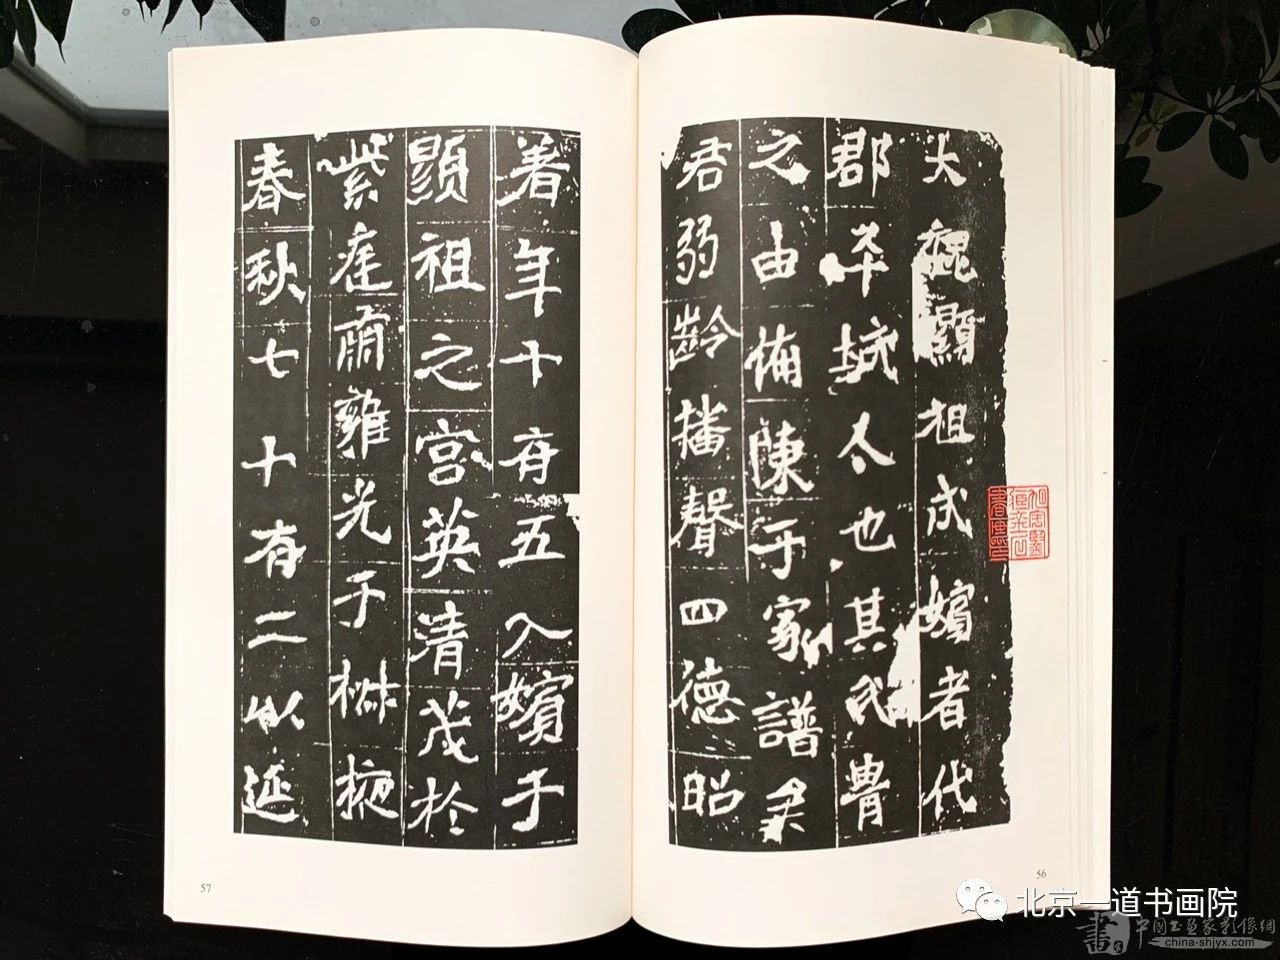 大魏顯祖成嬪者代
郡平城人也其氏胄
之由備陳于家譜矣
君弱齡播聲四德昭
著年十有五入嬪于
顯祖之宮英清茂於
紫庭肅雍光于椒掖
春秋七十有二以延
56
57
北京一道书画院
中國書畫家影像網
china-shjyx.com